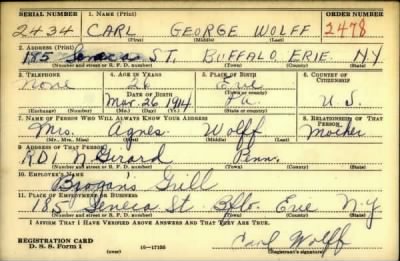 SERIAL NUMBER 1. NAME (Print) ORDER NUMBER
2434 CARL GEORGE WOLFF 2478
(First) (Middle) (Last)
2. ADDRESS (Print)
185 Seneca ST. BUFFALO ERIE N.Y
(Number and street or R. F. D. number) (Town) (County) (State)
3. TELEPHONE 4. AGE IN YEARS 5. PLACE OF BIRTH 6. COUNTRY OF CITIZENSHIP
None 26 Erie
DATE OF BIRTH (Town or county)
Mar. 26 1914 Pa. U.S.
(Exchange) (Number) (Mo.) (Day) (Yr.) (State or country)
7. NAME OF PERSON WHO WILL ALWAYS KNOW YOUR ADDRESS 8. RELATIONSHIP OF THAT PERSON
Mrs. Agnes Wolff Mother
(Mr., Mrs., Miss) (First) (Middle) (Last)
9. ADDRESS OF THAT PERSON
RD1 N Girard Penn.
(Number and street or R. F. D. number) (Town) (County) (State)
10. EMPLOYER'S NAME
Brogan's Grill
11. PLACE OF EMPLOYMENT OR BUSINESS
185 Seneca St Bflo. Erie N.Y
(Number and street or R. F. D. number) (Town) (County) (State)
I AFFIRM THAT I HAVE VERIFIED ABOVE ANSWERS AND THAT THEY ARE TRUE.
REGISTRATION CARD
D. S. S. Form 1 (over) 16—17105 Carl Wolff
(Registrant's signature)